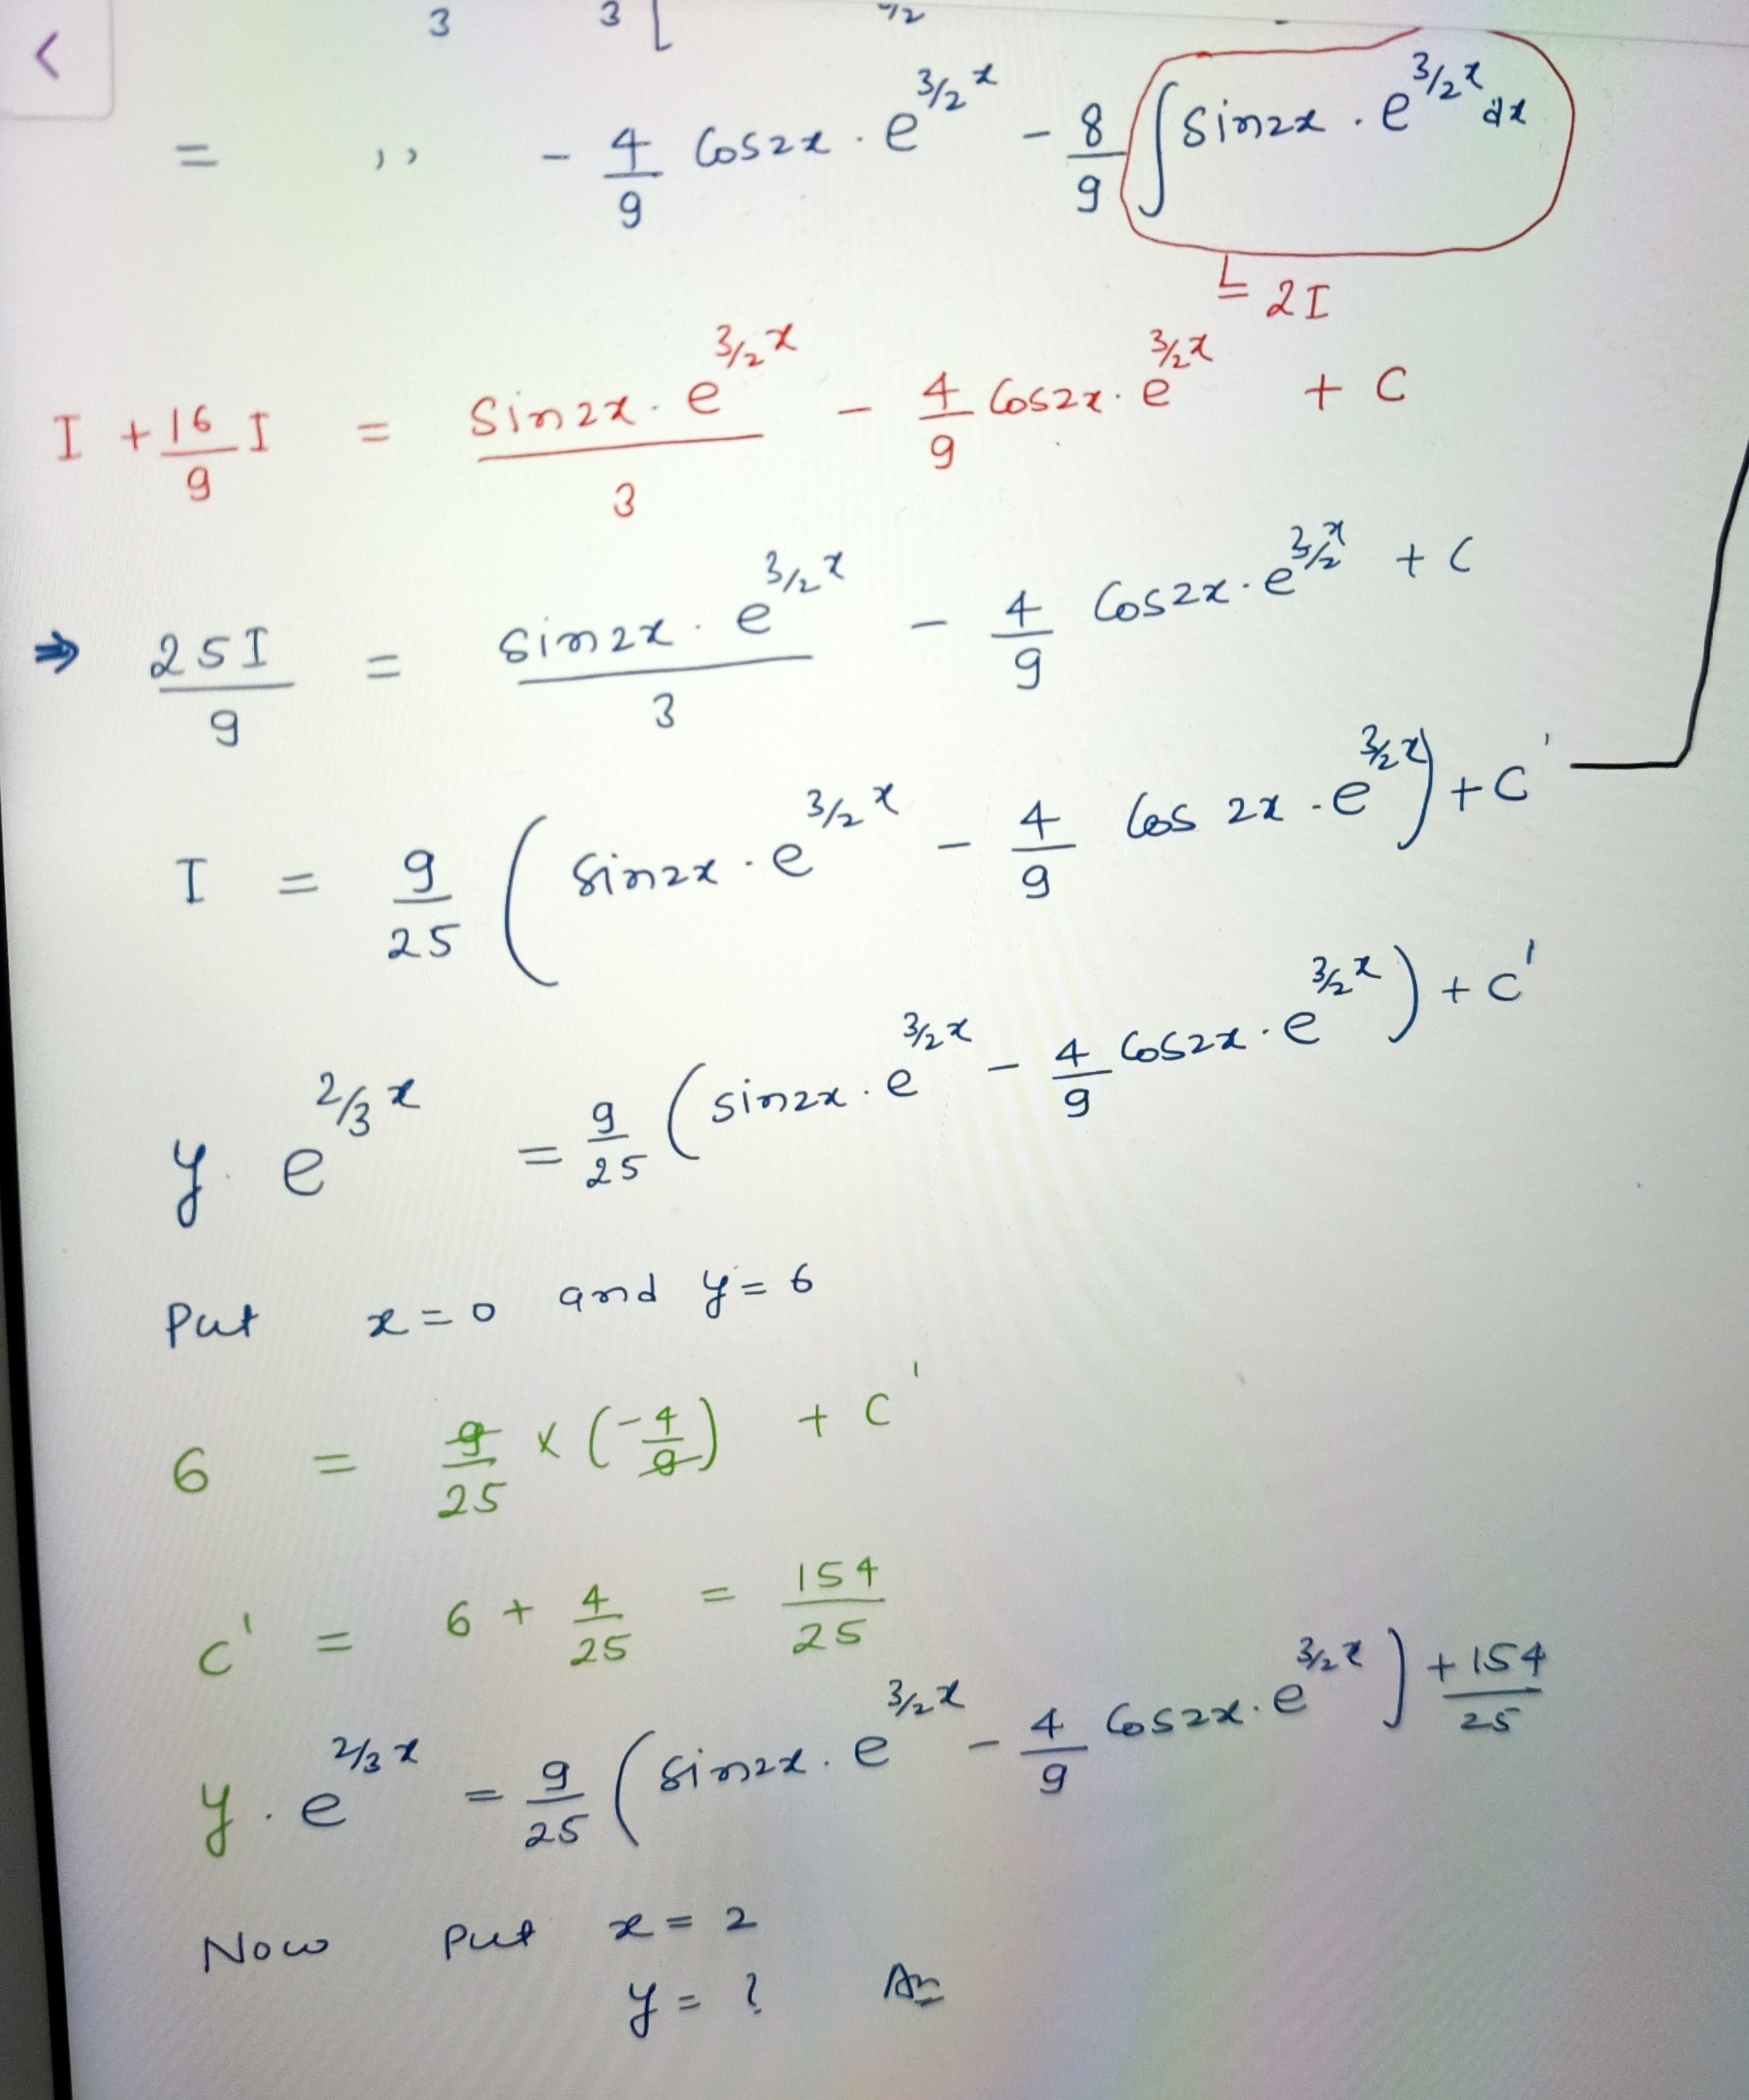 3 3 [
= ,, - 4/9 Cos2x . e^3/2 x - 8/9 ∫ sin2x . e^3/2 x dx
= 2I
I + 16/9 I = Sin2x . e^3/2 x / 3 - 4/9 Cos2x . e^3/2 x + C
⇒ 25I/9 = sin2x . e^3/2 x / 3 - 4/9 Cos2x . e^3/2 x + C
I = 9/25 ( sin2x . e^3/2 x - 4/9 Cos 2x . e^3/2 x ) + C'
y. e^2/3 x = 9/25 ( sin2x . e^3/2 x - 4/9 Cos2x . e^3/2 x ) + C'
Put x = 0 and y = 6
6 = 9/25 x ( -4/9 ) + C'
C' = 6 + 4/25 = 154/25
y . e^2/3 x = 9/25 ( sin2x . e^3/2 x - 4/9 Cos2x . e^3/2 x ) + 154/25
Now Put x = 2
y = ? An